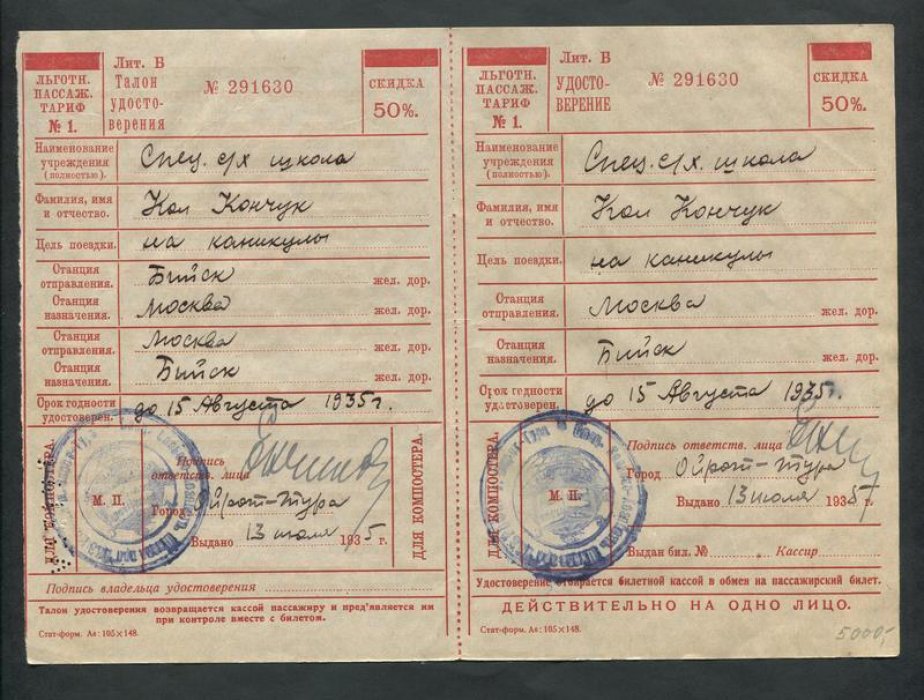 ЛЬГОТН.
ПАССАЖ.
ТАРИФ
№ 1.
Лит. В
Талон
удосто-
верения
№ 291630
СКИДКА
50%.
Наименование
учреждения
(полностью).
Спец. с/х школа
Фамилия, имя
и отчество.
Кол Кончук
Цель поездки.
на каникулы
Станция
отправления.
Бийск жел. дор.
Станция
назначения.
Москва жел. дор.
Станция
отправления.
Москва жел. дор.
Станция
назначения.
Бийск жел. дор.
Срок годности
удостоверен.
до 15 Августа 1935 г.
ДЛЯ КОМПОСТЕРА.
М. П.
Подпись
ответств. лица
Город Ойрот-Тура
Выдано 13 июля 1935 г.
ДЛЯ КОМПОСТЕРА.
Подпись владельца удостоверения
Талон удостоверения возвращается кассой пассажиру и пред'является им
при контроле вместе с билетом.
Стат-форм. А6: 105×148.
ЛЬГОТН.
ПАССАЖ.
ТАРИФ
№ 1.
Лит. В
УДОСТО-
ВЕРЕНИЕ
№ 291630
СКИДКА
50%.
Наименование
учреждения
(полностью).
Спец. с/х. школа
Фамилия, имя
и отчество.
Кол Кончук
Цель поездки.
на каникулы
Станция
отправления.
Москва жел. дор.
Станция
назначения.
Бийск жел. дор.
Срок годности
удостоверен.
до 15 Августа 1935 г.
ДЛЯ КОМПОСТЕРА.
М. П.
Подпись ответств. лица
Город Ойрот-Тура
Выдано 13 июля 1935 г.
Выдан бил. № Кассир
Удостоверение отбирается билетной кассой в обмен на пассажирский билет.
ДЕЙСТВИТЕЛЬНО НА ОДНО ЛИЦО.
Стат-форм. А6: 105×148.
5000,-